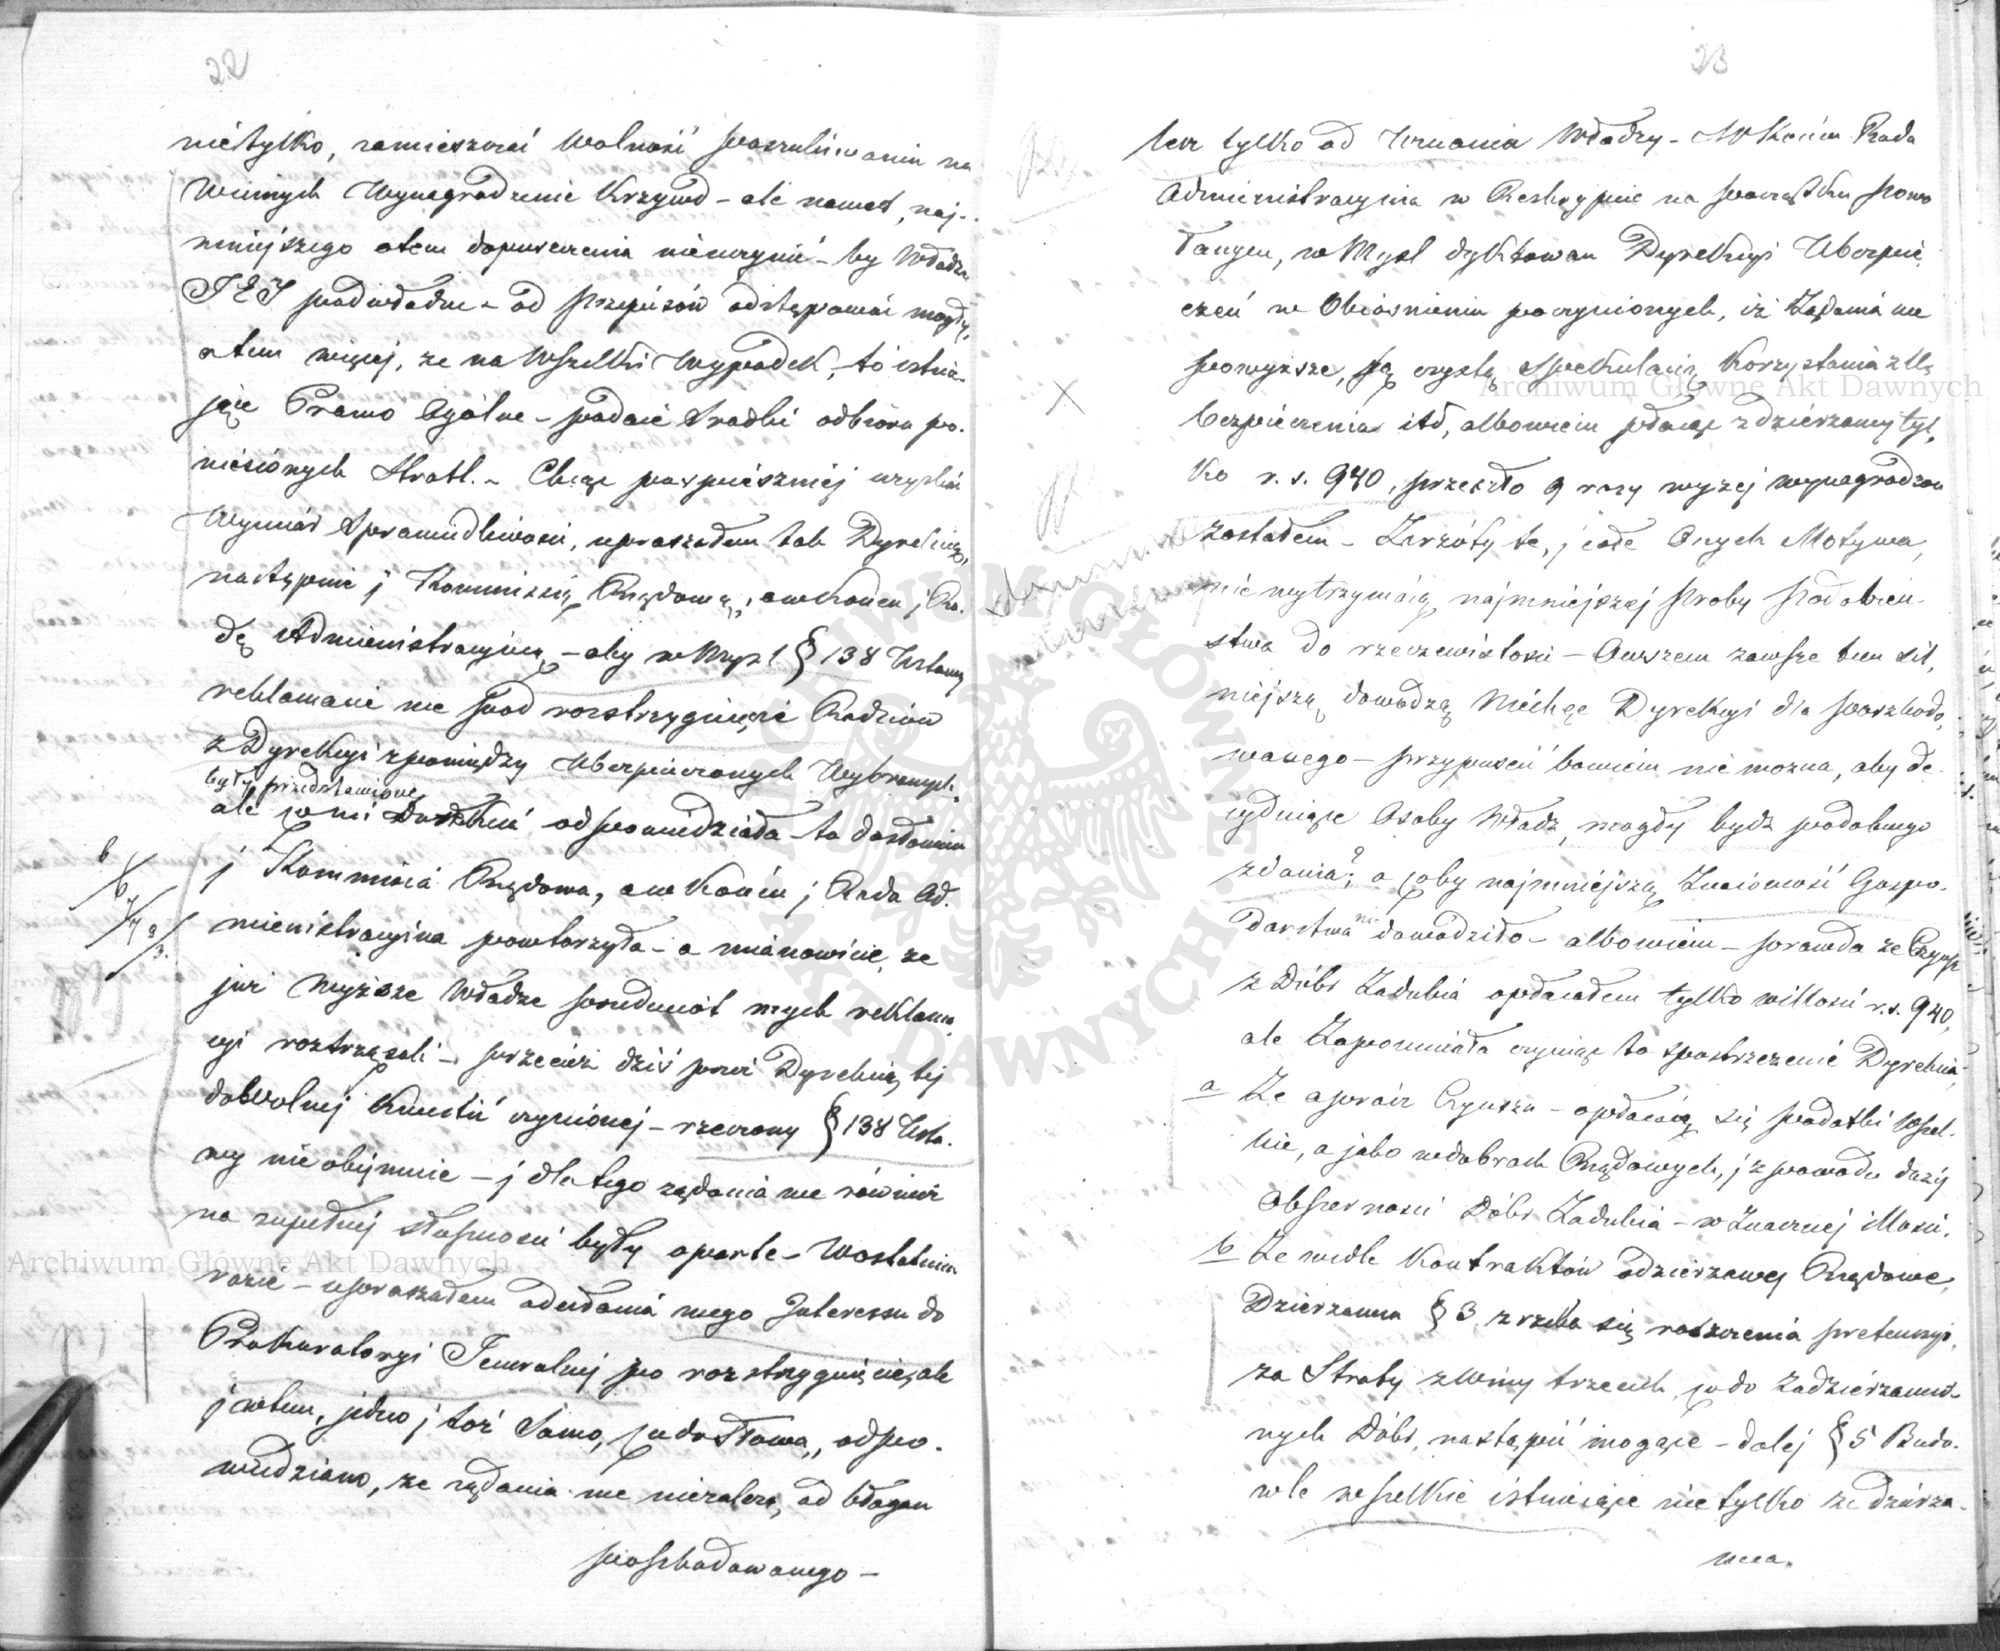 22
nietylko, zamieszczać Wolność poszukiwania na
Winnych Wynagrodzenie Krzywd – ale nawet, naj-
mniejszego otem dopuszczenia nieczynić – by Władze
podwładne – od Przepisów odstępować mogły,
atem więcej, że na Wszelki Wypadek, to istnie-
jące Prawo Ogólne – podaie Środki odbioru po-
niesionych Strat. – Chcąc pospieszniej uzyskać
Wymiar Sprawiedliwości, upraszałem tak Dyrekcyą,
następnie j Kommissią Rządową, awkońcu j Ra-
dę Administracyiną, – aby w Mysl § 138 Ustawy
reklamacie me pod rozstrzygnięcie Radzców
z Dyrekcyi z pomiędzy Ubezpieczonych Wybranych,
były przedstawione
ale co mi Dyrekcia odpowiedziała – to dosłownie
j Kommissia Rządowa, a w Końcu j Rada Ad-
ministracyina powtorzyła – a mianowicie, że
już Wyższe Władze przedmiot mych reklama-
cyi roztrząsali – przecież dziś przez Dyrekcią tej
dobrolnej Kwestii czynionej – rzeczony § 138 Usta-
wy nie obejmuie – j dla tego żądania me również
na zupełnej słuszności były oparte – Wostatnim
razie – upraszałem odesłania mego Interessu do
Prokuratoryi Jeneralnej po rozstrzygnięcie, ale
j wtem, jedno j toż Samo, co do słowa, odpo-
wiedziano, że żądania me niezależą, od błagań
poszkodowanego –
23
lecz tylko od Uznania Władzy – W Końcu Rada
Administracyina w Reskrypcie na początku powo-
łanym, w Mysl dyktowan Dyrekcyi Ubezpie-
czeń w Obiaśnieniu poczynionych, iż Żądania me
powyższe, są czystą Spekulacią Korzystania z U-
bezpieczenia itd, albowiem płacąc z dzierzawy tyl-
ko r. s. 940, przeszło 9 razy wyżej wynagrodzon
zostałem – Zarzóty te, j całe Onych Motywa,
nie wytrzymaią najmniejszej Proby Podobień-
stwa do rzeczewistosci – Owszem zawsze tem sil-
niejszą dowodzą Niechęć Dyrekcyi dla poszkodo-
wanego – przypuscić bowiem nie można, aby de-
cyduiące Osoby Władz, mogły bydź podobnego
zdania; a coby najmniejszą Znaiomość Gospo-
darstwa nie dowodziło – albowiem – prawda że Czynsz
z Dóbr Zadubia opłacałem tylko wilości r. s. 940,
ale Zapomniała czyniąc to spostrzeżenie Dyrekcia,
a Że aprócz Czynszu – opłacaią się podatki Wszel-
kie, a jako wdobrach Rządowych, j z powodu dużej
Obszerności Dóbr Zadubia – w Znacznej ilłosci.
b Że wedle Kontraktów odzierzawę Rządowe,
Dzierzawca § 3 zrzeka się roszczenia pretensyi,
za Straty z Winy trzecich, co do Zadzierzawio-
nych Dóbr, nastąpić mogące – dalej § 5 Budo-
wle wszelkie istnieiące nie tylko że dzierza-
wca.